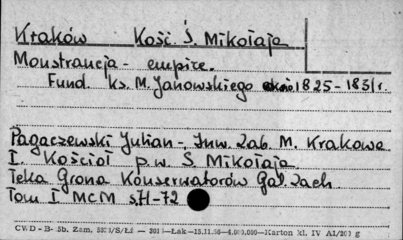 Kraków Kość. Ś. Mikołaja
Monstrancja - empire.
Fund. ks. M. Janowskiego okoo. 1825-1831r.
Pagaczewski Julian - Inw. Zab. M. Krakowa
I. Kościół p.w. Ś Mikołaja
Teka Grona Konserwatorów Gal. Zach.
Tom I MCM s. 71-72
CWD - B- Zam. Łak-15.11.56-4.000.000-Karton kl. IV A1/200 g